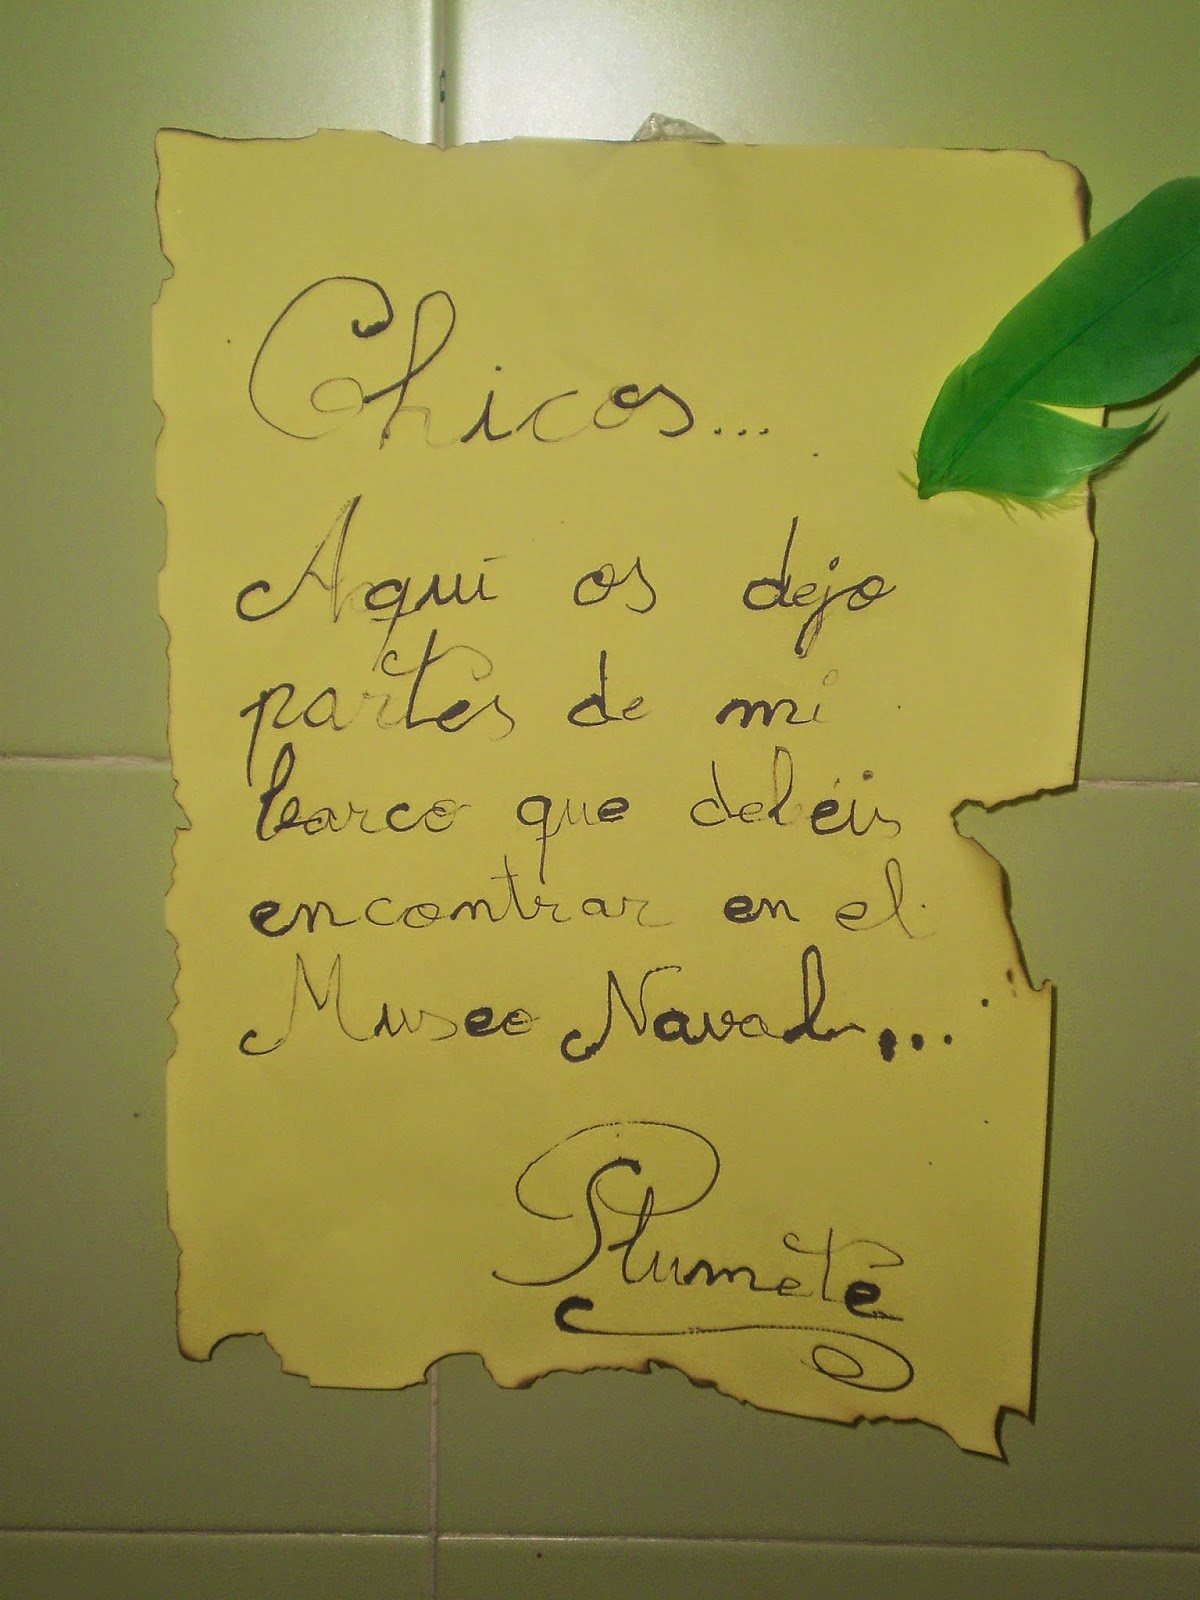 Chicos...
Aquí os dejo
partes de mi
barco que debéis
encontrar en el
Museo Naval...
Plumeté